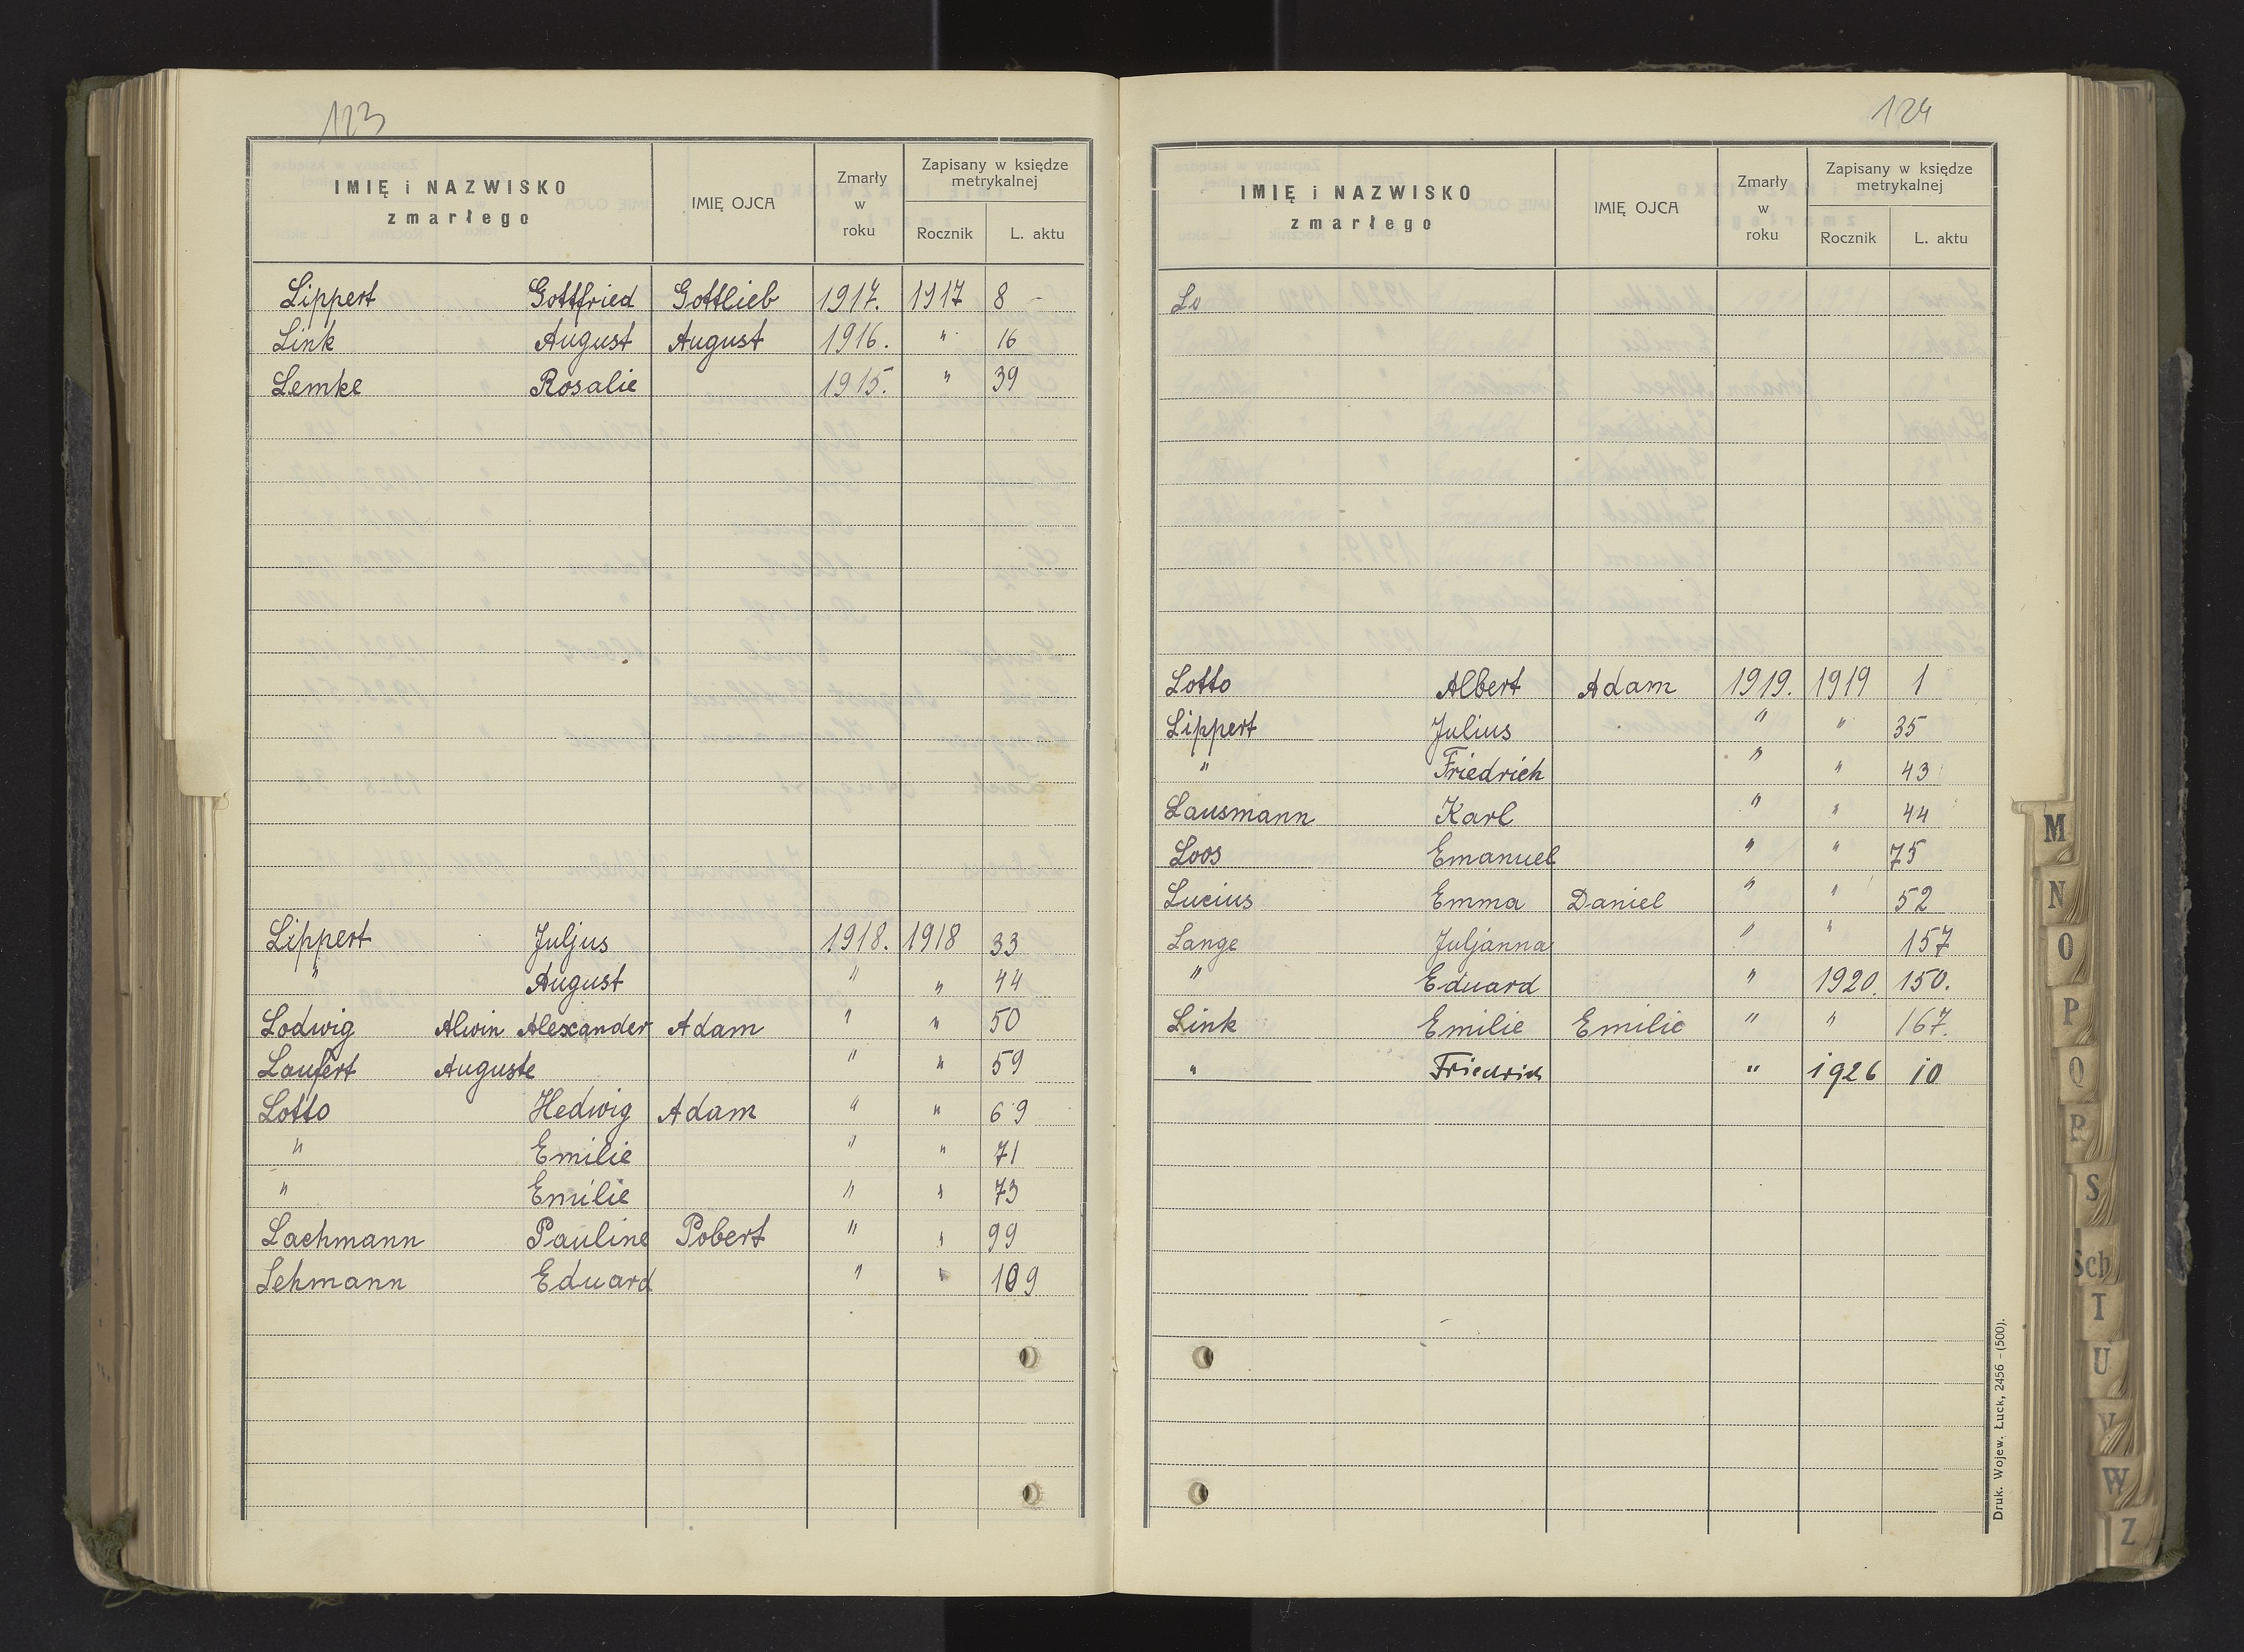 123
IMIĘ i NAZWISKO zmarłego IMIĘ OJCA Zmarły w roku Zapisany w księdze metrykalnej Rocznik L. aktu
Lippert Gottfried Gottlieb 1917. 1917 8
Link August August 1916. " 16
Lemke Rosalie 1915. " 39
Lippert Juljus 1918. 1918 33
" August " " 44
Lodwig Alwin Alexander Adam " " 50
Laufert Auguste " " 59
Lotto Hedwig Adam " " 69
" Emilie " " 71
" Emilie " " 73
Lachmann Pauline Pobert " " 99
Lehmann Eduard " " 109
124
IMIĘ i NAZWISKO zmarłego IMIĘ OJCA Zmarły w roku Zapisany w księdze metrykalnej Rocznik L. aktu
Lo
Lotto Albert Adam 1919. 1919 1
Lippert Julius " " 35
" Friedrich " " 43
Lausmann Karl " " 44
Loos Emanuel " " 75
Lucius Emma Daniel " " 52
Lange Juljanna " " 157
" Eduard " 1920. 150.
Link Emilie Emilie " " 167.
" Friedrich " 1926 10
Druk. Wojew. Łuck, 2456 - (500).
M
N
O
P
Q
P
S
Sch
T
U
V
W
Z